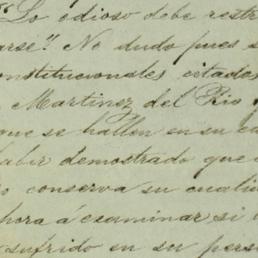 "Lo odioso debe restr
arse". No dudo pues s
onstitucionales citados
Martinez del Rio
que se hallen en su ca
haber demostrado que
conserva su cualid
ahora á examinar si
sufrido en su pers